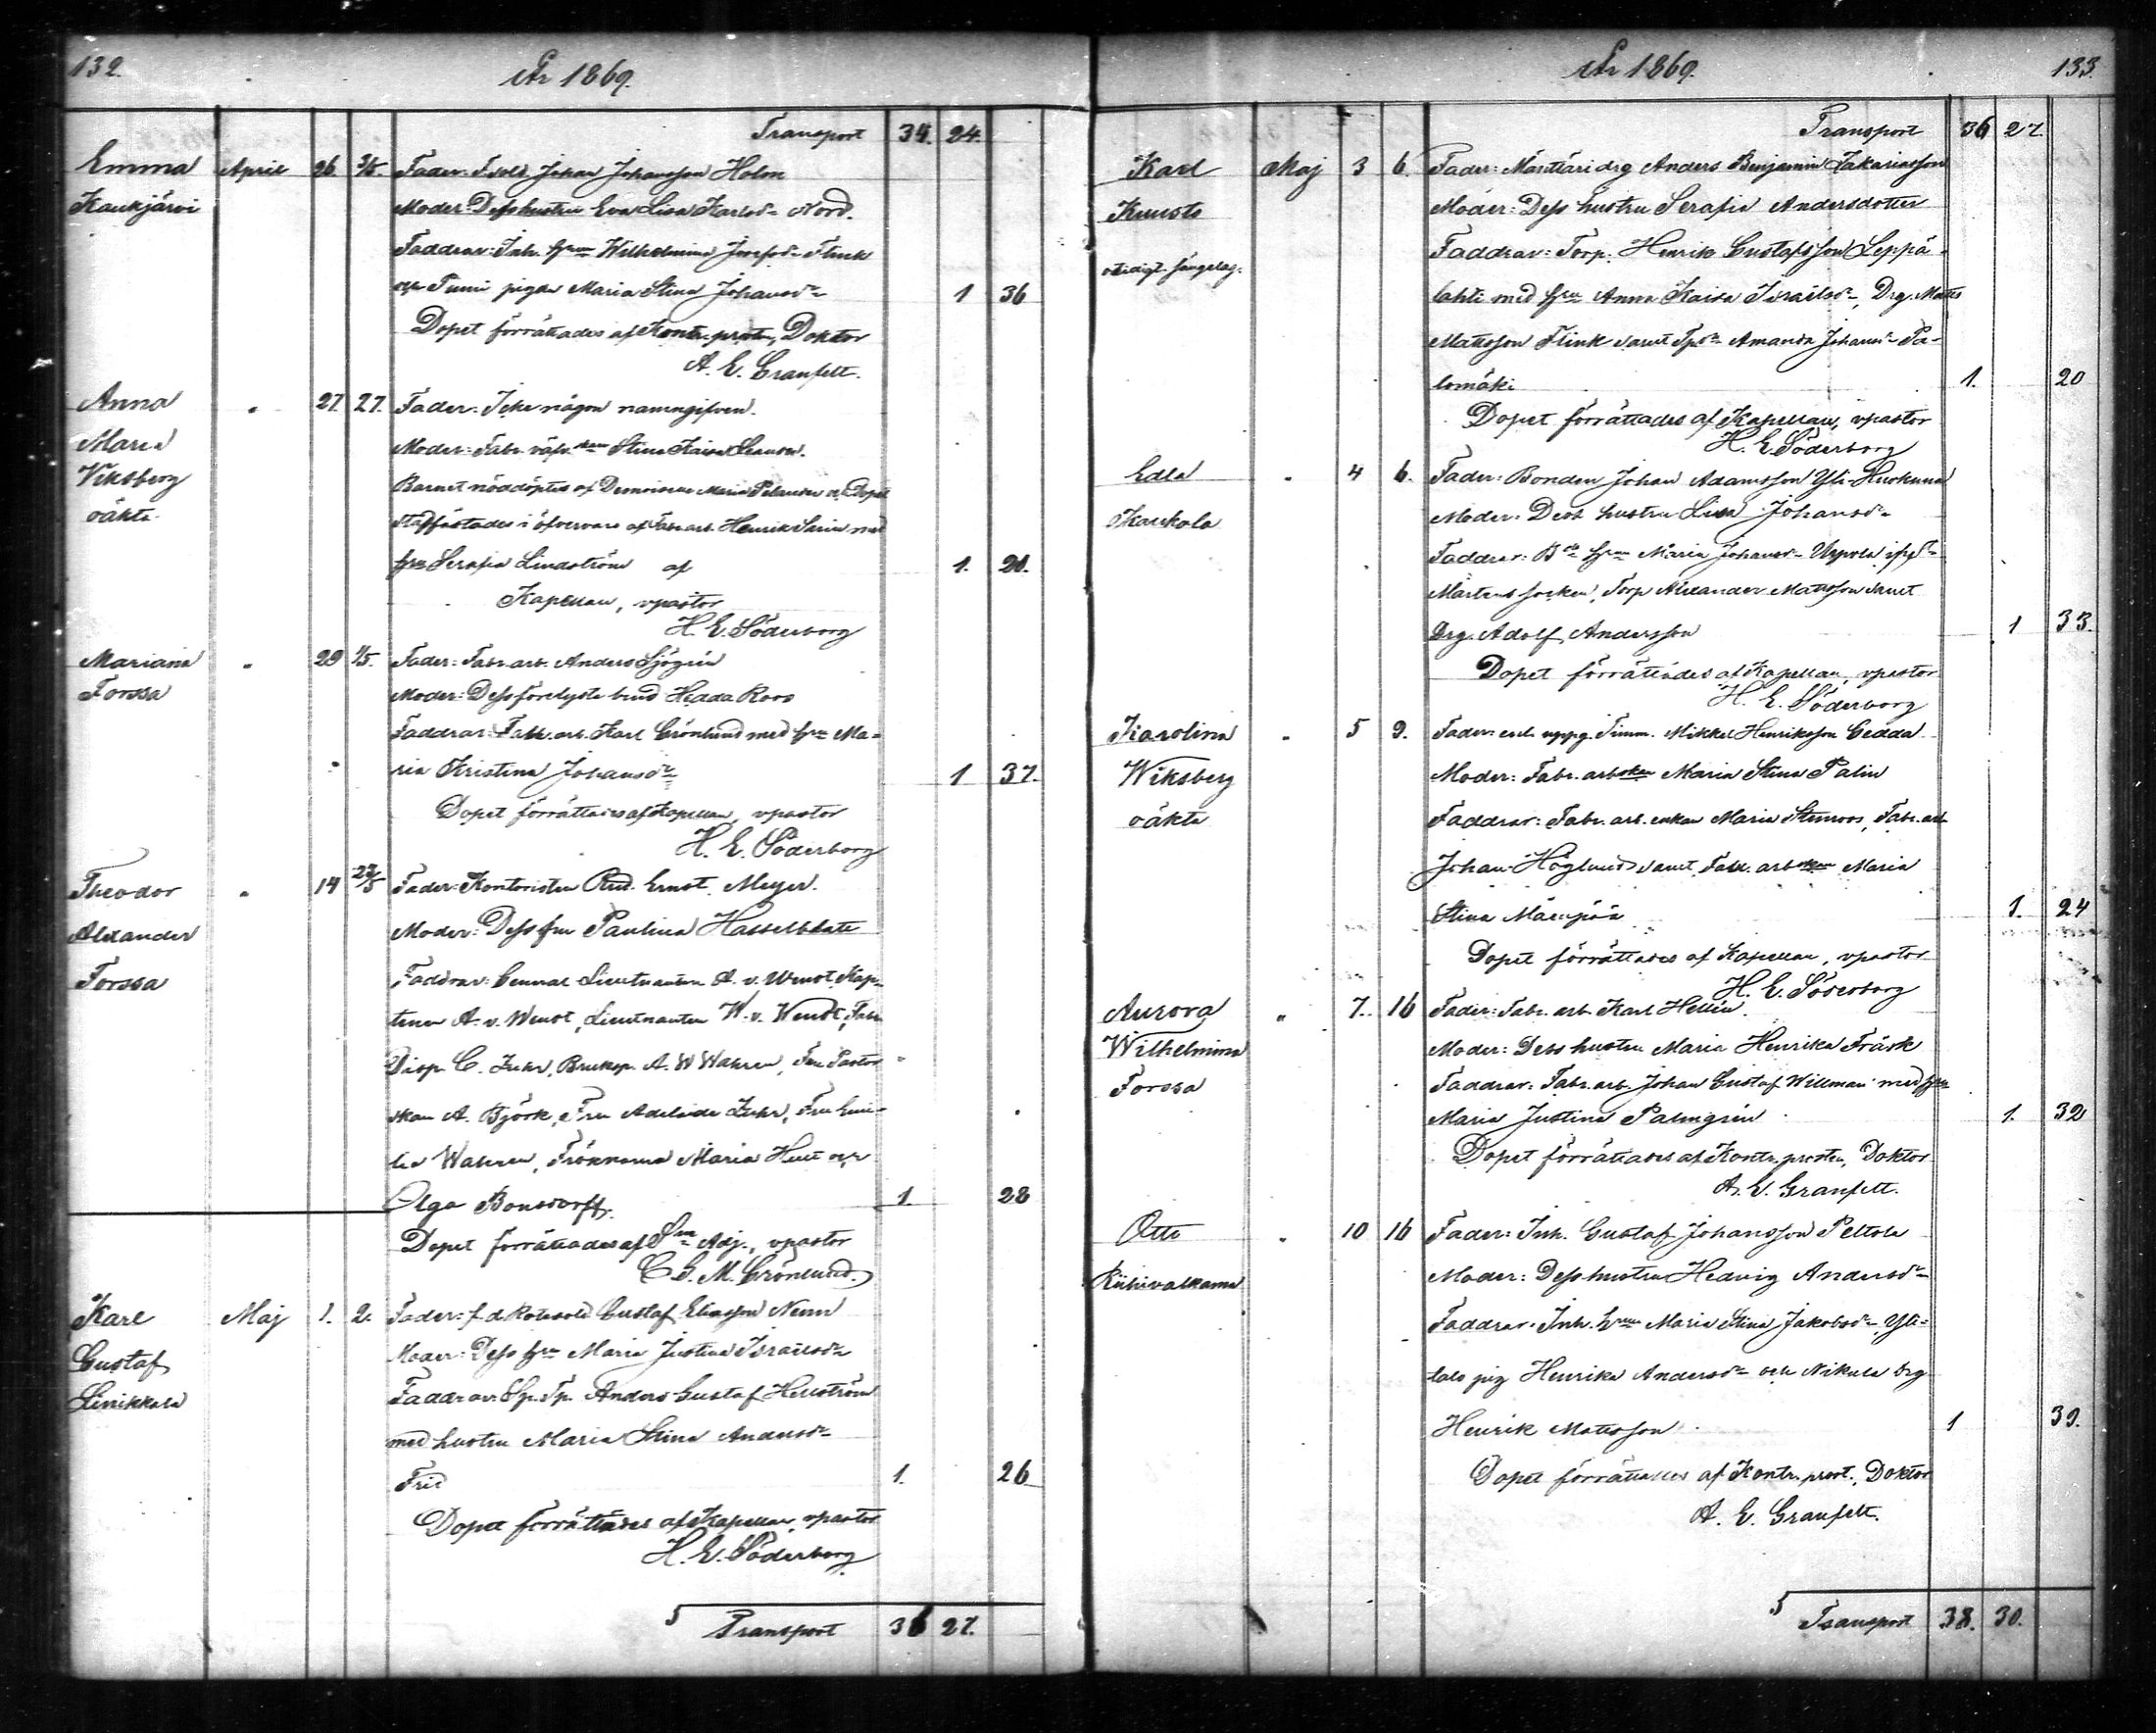 132.
År 1869.
Transport 34. 24.
Emma April 26. 3/5. Fader: Johan Johansson Holm
Kaukjärvi Moder: Dess hustru Eva Lisa Karlsdr Nord.
Faddrar: Inh. hrun Wilhelmina Josefsdr Flink
pigan Maria Stina Johansdr 1 36
Dopet förrättades af Kontr. prosten, Doktor
A. E. Granfelt.
Anna " 27. 27. Fader: Icke någon namngifven.
Maria Moder: Fabr. Stina Kaisa
Viksberg Barnet nöddöptes af Demoiselle Maria Dopet
oäkta stadfästades i öfvervaro af Fabr. arb. Henrik med
hru Serafia Lindström af 1. 21.
Kapellan, vpastor
H. E. Söderborg
Mariana " 29 1/5. Fader: Fabr. arb. Anders Sjögrén
Forssa Moder: Dess förelyste brud Hedda Roos
Faddrar: Fabr. arb. Karl Grönlund med hru Ma-
ria Kristina Johansdr 1 37.
Dopet förrättades af Kapellan, vpastor
H. E. Söderborg
Theodor " 14 22/5 Fader: Kontoristen Rud. Ernst Meyer.
Alexander Moder: Dess fru Paulina Hasselblatt
Forssa Faddrar: General Lieutnanten A. v. Wendt, Kap-
tenen A. v. Wendt, Lieutnanten W. v. Wendt, Fabr.
Disp. C. Zuhr, Bruksp. A. W Wahren, Fru Pastor-
skan A. Björk, Fru Adelaide Zuhr, Fru Emi-
lia Wahren, Fröknarna Maria och
Olga Bonsdorff. 1. 28
Dopet förrättades af Adj., vpastor
C G. M. Grönlund.
Karl Maj 1. 2. Fader: f. d. Rotesold. Gustaf Eliasson
Gustaf Moder: Dess hru Maria Justina Israelsdr
Linikkala Faddrar: Sp. Tp. Anders Gustaf Hellström
med hustru Maria Stina Andersdr
Frid 1. 26
Dopet förrättades af Kapellan, vpastor
H. E. Söderborg
5 Transport 36 27.
År 1869. 133.
Transport 36 27.
Karl Maj 3 6. Fader: drg Anders Benjamin Zakariasson
Kuusto Moder: Dess hustru Serafia Andersdotter
Faddrar: Torp. Henrik Gustafsson Leppä-
lahti med hru Anna Kaisa Israelsdr, Drg. Matts
Mattsson Flink samt Amanda Johansdr Pa-
lomäki 1. 20
Dopet förrättades af Kapellan, vpastor
H. E. Söderborg
Edla " 4 6. Fader: Bonden Johan Adamsson Yli-
Kaukola Moder: Dess hustru Lisa Johansdr
Faddrar: hrun Maria Johansdr Uspola i St
Mårtens socken, Torp Alexander Mattsson samt
Drg. Adolf Andersson 1 33.
Dopet förrättades af Kapellan, vpastor
H. E. Söderborg
Karolina " 5 9. Fader: enl. uppg. Timm. Mikkel Henriksson Gedda
Wiksberg Moder: Fabr. arbskan Maria Stina Palin
oäkta Faddrar: Fabr. arb. enkan Maria Stenroos, Fabr. arb.
Johan Höglund samt Fabr. arbskan Maria
Stina Mäenpää 1. 24
Dopet förrättades af Kapellan, vpastor
H. E. Söderborg
Aurora " 7. 16 Fader: Fabr. arb. Karl Hellén.
Wilhelmina Moder: Dess hustru Maria Henrika Fräsk
Forssa Faddrar: Fabr. arb. Johan Gustaf Willman med hru
Maria Justina Palmgrén 1. 32
Dopet förrättades af Kontr. prosten, Doktor
A. E. Granfelt.
Otto " 10 16 Fader: Inh. Gustaf Johansson Peltola
Riihivalkama Moder: Dess hustru Hedvig Andersdr
Faddrar: Inh. hrun Maria Stina Jakobsdr Yli-
talo pig Henrika Andersdr och Nikula drg
Henrik Mattsson 1 39.
Dopet förrättades af Kontr. prost., Doktor
A. E. Granfelt.
5 Transport 38. 30.